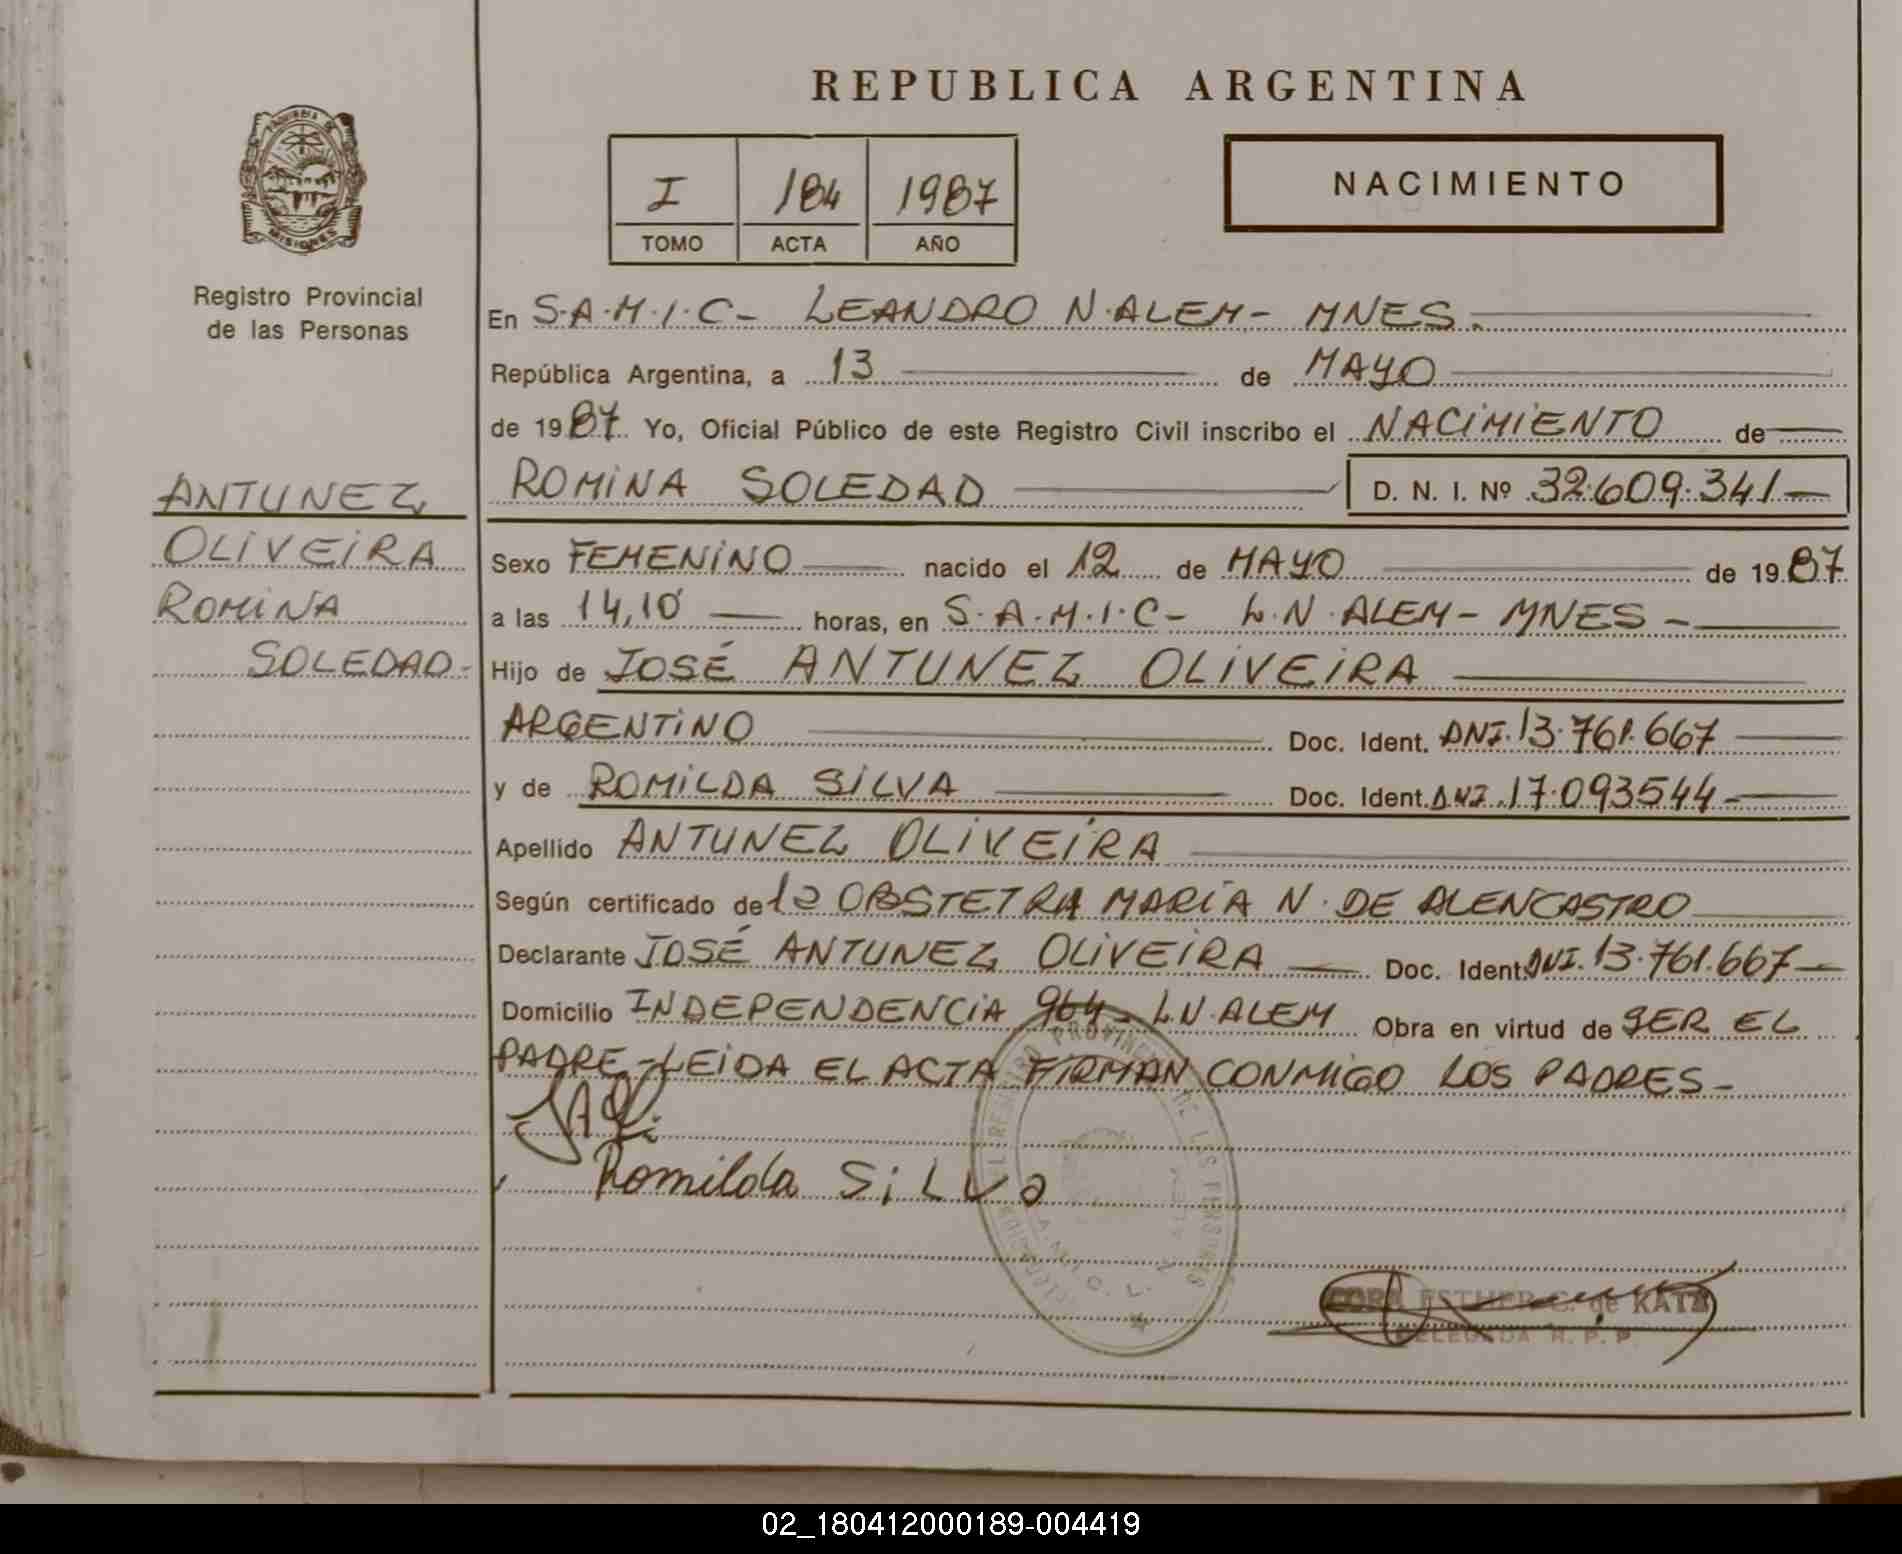 REPUBLICA ARGENTINA
PROVINCIA DE
MISIONES
I 184 1987
TOMO ACTA AÑO
NACIMIENTO
Registro Provincial
de las Personas
ANTUNEZ
OLIVEIRA
ROMINA
SOLEDAD-
En S.A.M.I.C- LEANDRO N.ALEM- MNES.
República Argentina, a 13 de MAYO
de 1987 Yo, Oficial Público de este Registro Civil inscribo el NACIMIENTO de
ROMINA SOLEDAD D. N. I. Nº 32.609.341-
Sexo FEMENINO nacido el 12 de MAYO de 1987
a las 14,10 horas, en S.A.M.I.C- L.N.ALEM- MNES-
Hijo de JOSÉ ANTUNEZ OLIVEIRA
ARGENTINO Doc. Ident. DNI.13.761.667
y de ROMILDA SILVA Doc. Ident. DNI.17.093544-
Apellido ANTUNEZ OLIVEIRA
Según certificado de la OBSTETRA MARÍA N. DE ALENCASTRO
Declarante JOSÉ ANTUNEZ OLIVEIRA Doc. Ident. DNI.13.761.667-
Domicilio INDEPENDENCIA 964- L.N.ALEM Obra en virtud de SER EL
PADRE-LEIDA EL ACTA FIRMAN CONMIGO LOS PADRES-
Romilda SiLVa
ESTHER G. de KATZ
DELEGADA R. P. P.
02_180412000189-004419